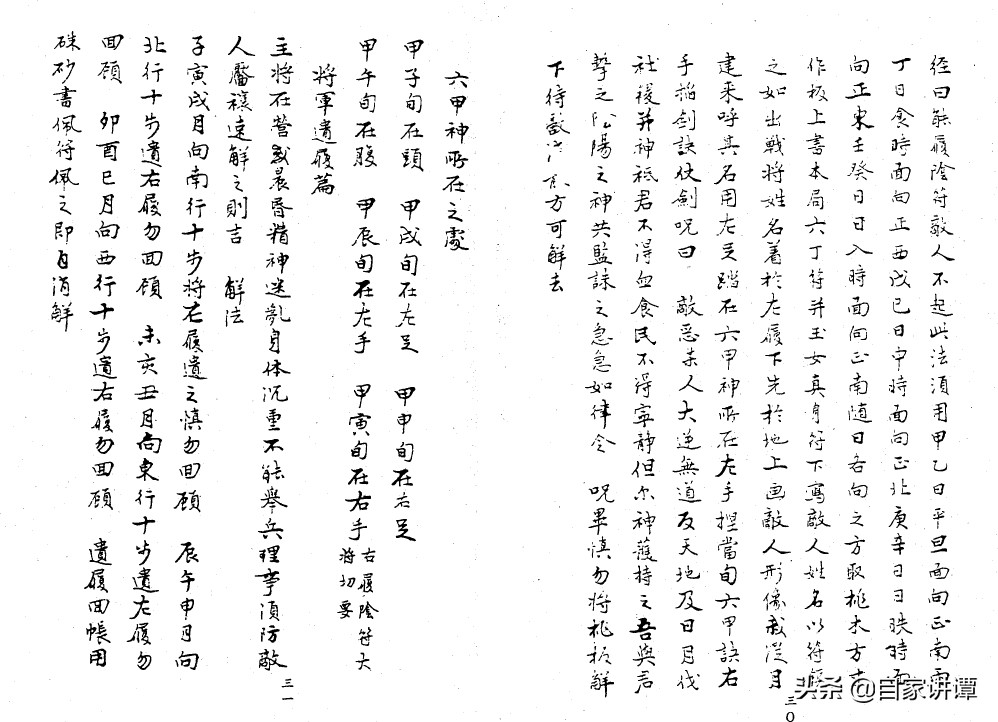 經曰能履陰符敵人不起此法須用甲乙日平旦面向正南丙
丁日食時面向正西戊己日中時面向正北庚辛日日昳時面
向正東壬癸日日入時面向正南隨日各向之方取桃木方寸
作板上書本局六丁符并玉女真身符下寫敵人姓名以符
之如出戰將姓名着於左履下先於地上画敵人形像
建來呼其名用左足踏在六甲神所在左手揑當旬六甲訣右
手搯劍訣仗劍呪曰 敵惡某人大逆無道反天地及日月伐
社稷并神祇君不得血食民不得寧静但尔神護持之吾與君
擊之陰陽之神共監誅之急急如律令 呪畢慎勿將桃板解
下待敵 方可解去
三〇
六甲神所在之處
甲子旬在頭 甲戌旬在左足 甲申旬在右足
甲午旬在腹 甲辰旬在左手 甲寅旬在右手 右履陰符大
將切要
將軍遺履篇
主將在營或晨昏精神迷亂身体沉重不能舉兵理事須防敵
人厭禳速解之則吉 解法
子寅戌月向南行十步將左履遺之慎勿回顧 辰午申月向
北行十步遺右履勿回顧 未亥丑月向東行十步遺左履勿
回顧 卯酉巳月向西行十步遺右履勿回顧 遺履回帳用
硃砂書佩符佩之即自消解
三一
头条 @自家讲谭